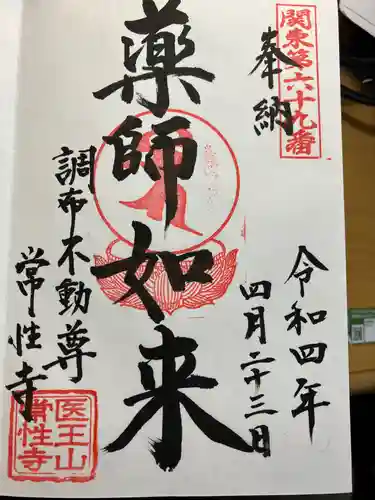 関東第六十九番
奉納
令和四年
四月二十三日
薬師如来
調布不動尊
常性寺
医王山
常性寺